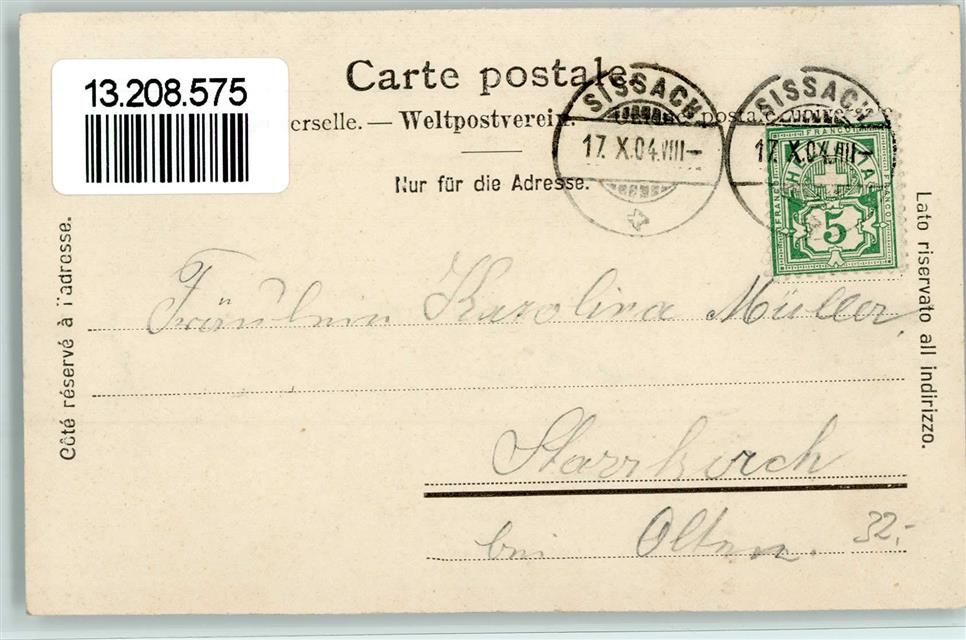 13.208.575
Carte postale.
erselle. — Weltpostverein.
Nur für die Adresse.
SISSACH
17. X.04.VIII—
SISSACH
17. X.04.VIII
FRANCO
HELVETIA
5
Côté réservé à l'adresse.
Lato riservato all indirizzo.
Fräulein Karolina Müller,
Starrkirch
bei Olten.
32,-